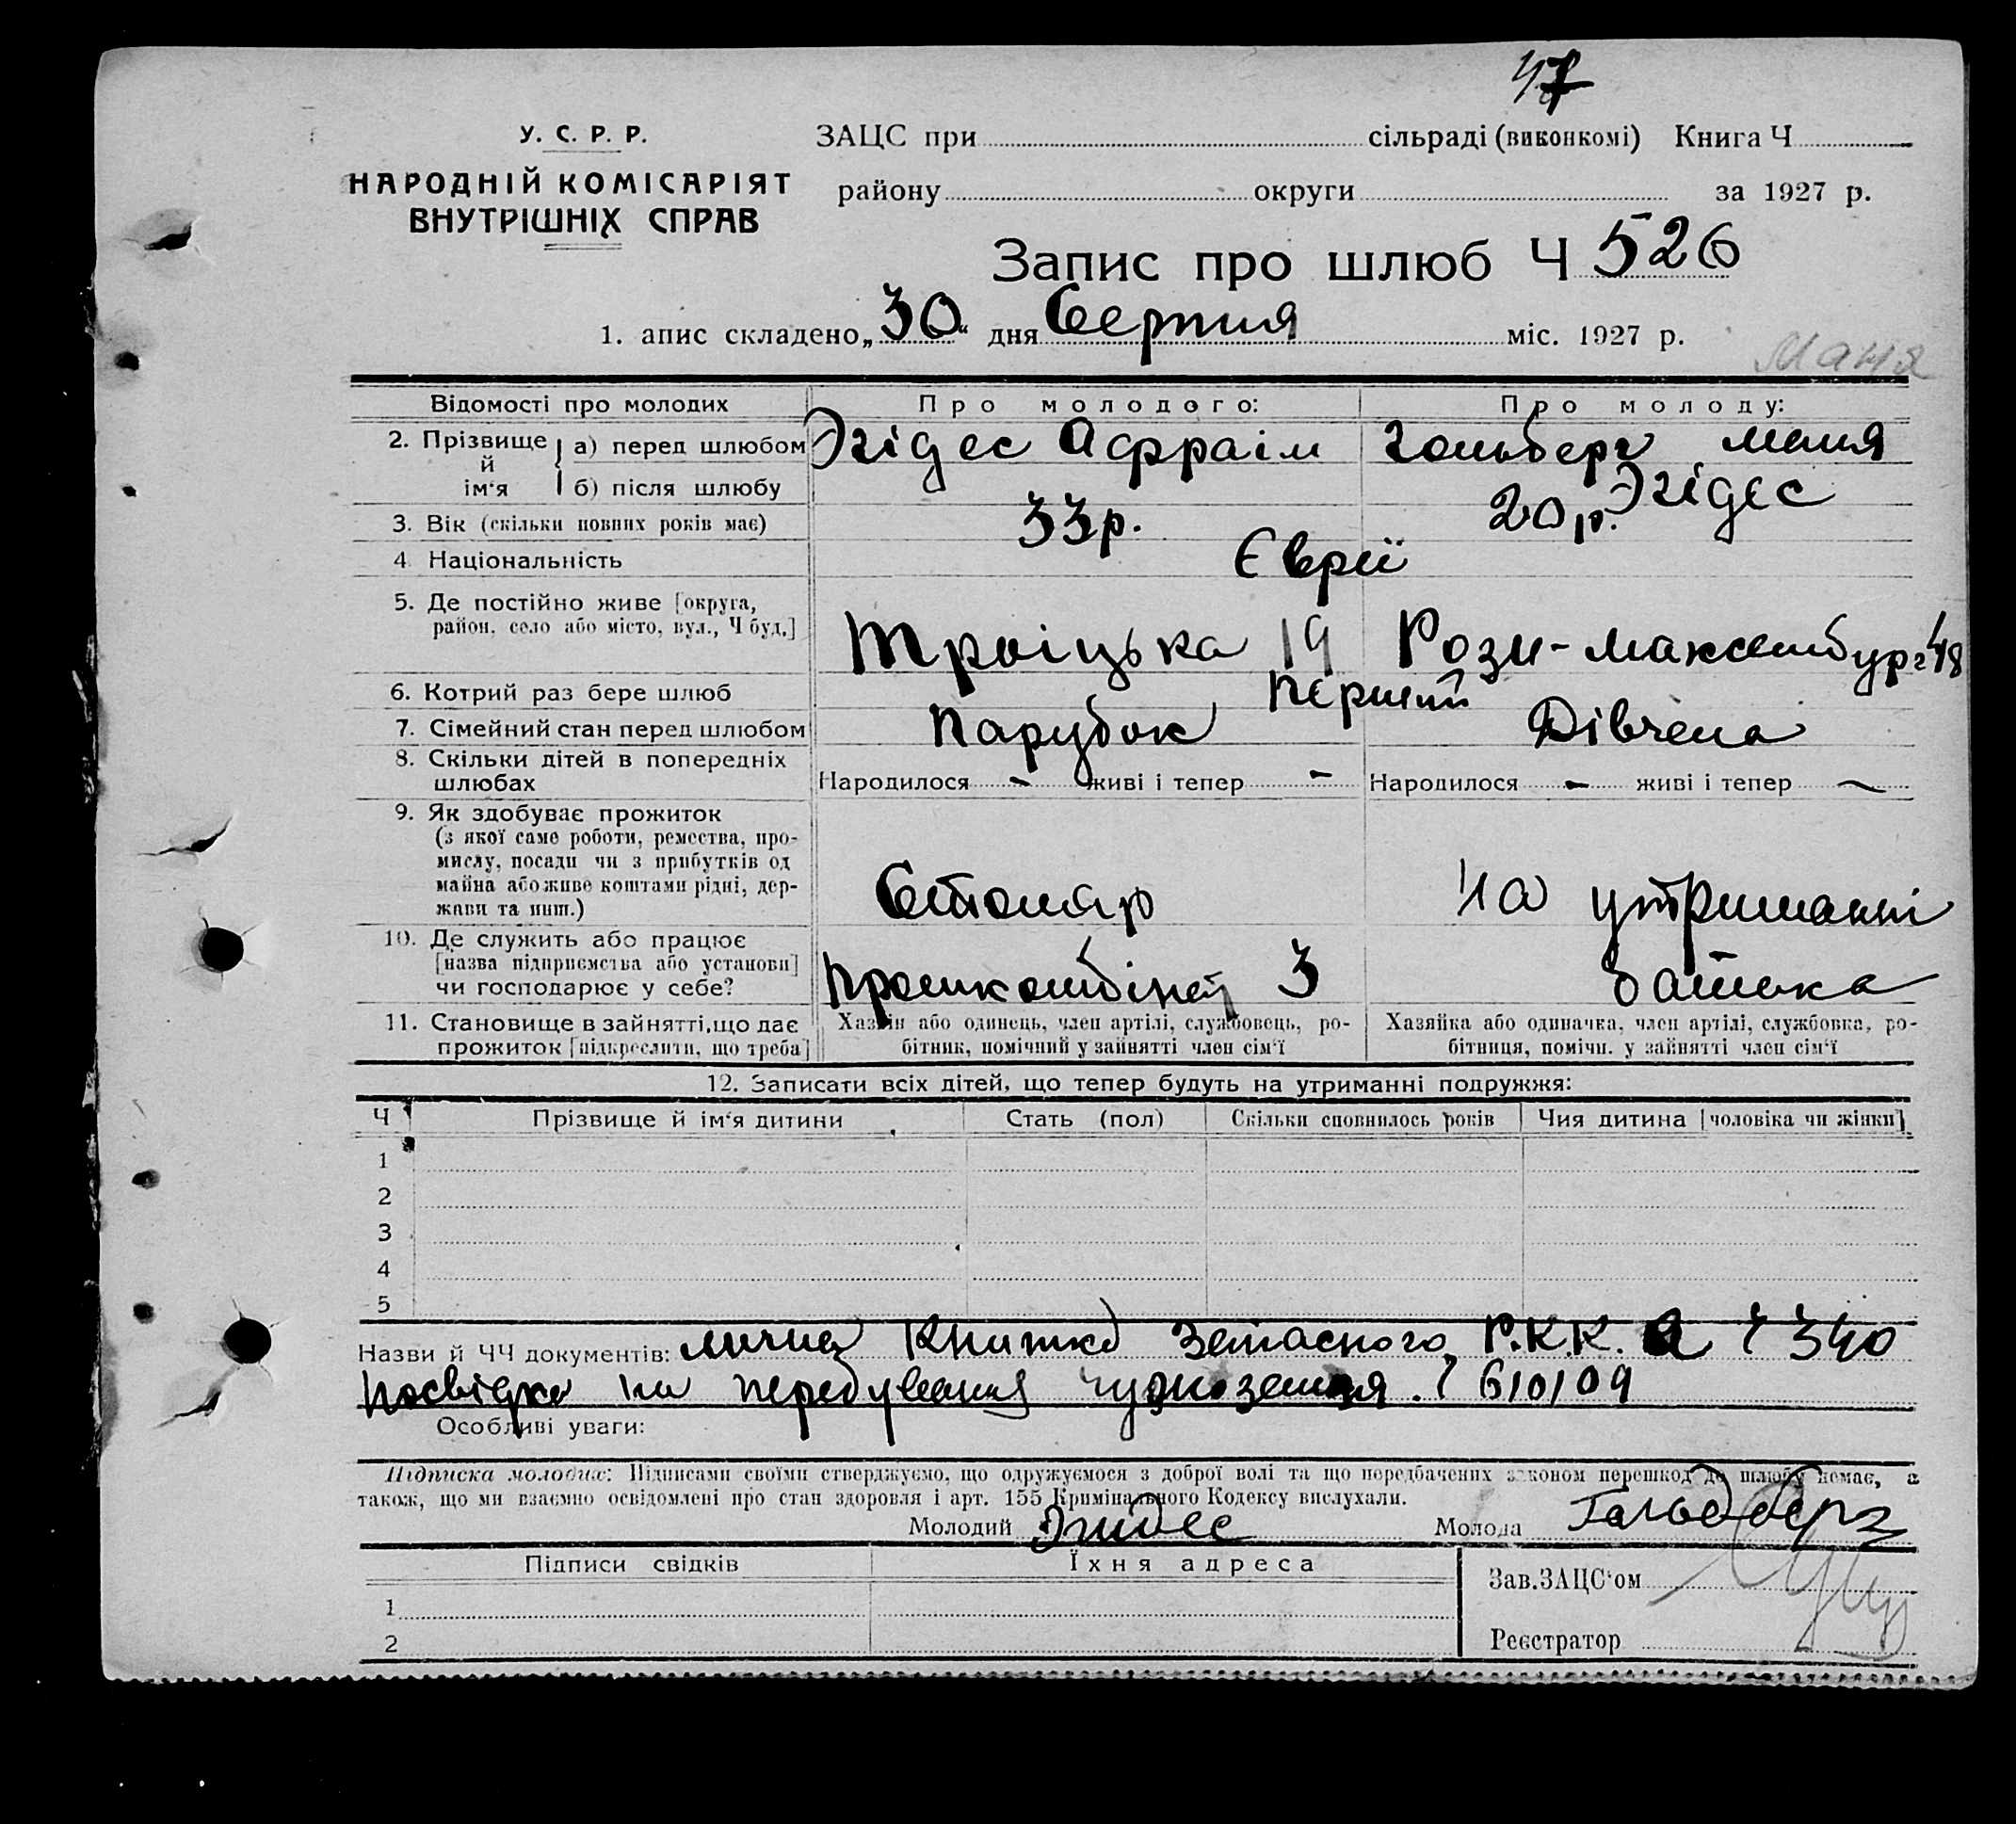 47
У. С. Р. Р.
НАРОДНІЙ КОМІСАРІЯТ
ВНУТРІШНІХ СПРАВ
ЗАЦС при сільраді (виконкомі) Книга Ч
району округи за 1927 р.
Запис про шлюб Ч 526
1. апис складено „30“ дня Серпня міс. 1927 р.
Маня
Відомості про молодих Про молодого: Про молоду:
2. Прізвище й ім‘я а) перед шлюбом Эгідес Афраім Гольберг Маня
б) після шлюбу Эгідес
3. Вік (скільки повних років має) 33р. 20 р.
4 Національність Євреї
5. Де постійно живе [округа, район, село або місто, вул., Ч буд.] Троіцька 19 Рози-Люксембург 48
6. Котрий раз бере шлюб Перший
7. Сімейний стан перед шлюбом Парубок Дівчена
8. Скільки дітей в попередніх шлюбах Народилося - живі і тепер - Народилося - живі і тепер -
9. Як здобуває прожиток
(з якої саме роботи, ремества, промислу, посади чи з прибутків од майна або живе коштами рідні, держави та инш.) Столяр На утриманні
10. Де служить або працює
[назва підприємства або установи]
чи господарює у себе? Промкомбінат 3 батька
11. Становище в зайнятті, що дає прожиток [підкреслити, що треба] Хазяїн або одинець, член артілі, службовець, робітник, помічний у зайнятті член сім‘ї Хазяйка або одиначка, член артілі, службовка, робітниця, помічн. у зайнятті член сім‘ї
12. Записати всіх дітей, що тепер будуть на утриманні подружжя:
Ч Прізвище й ім‘я дитини Стать (пол) Скільки сповнилось років Чия дитина [чоловіка чи жінки]
1
2
3
4
5
Назви й ЧЧ документів: Книжка Р.К.К. 340
Посвідка на перебування 610109
Особливі уваги:
Підписка молодих: Підписами своїми стверджуємо, що одружуємося з доброї волі та що передбачених законом перешкод до шлюбу немає, а
також, що ми взаємно освідомлені про стан здоровля і арт. 155 Кримінального Кодексу вислухали.
Молодий Эгидес Молода Гольдберг
Підписи свідків Їхня адреса
Зав.ЗАЦС‘ом
1
Реєстратор
2